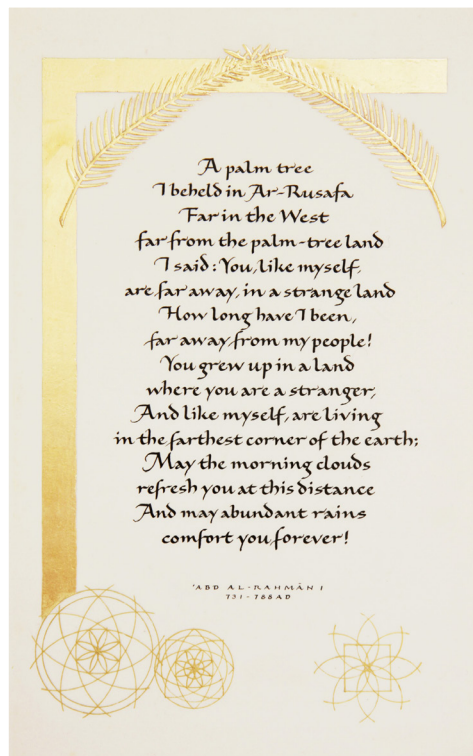 A palm tree
I beheld in Ar-Rusafa
Far in the West
far from the palm-tree land
I said: You, like myself,
are far away, in a strange land
How long have I been,
far away from my people!
You grew up in a land
where you are a stranger,
And like myself, are living
in the farthest corner of the earth;
May the morning clouds
refresh you at this distance
And may abundant rains
comfort you forever!
'ABD AL-RAHMĀN I
731-788 AD